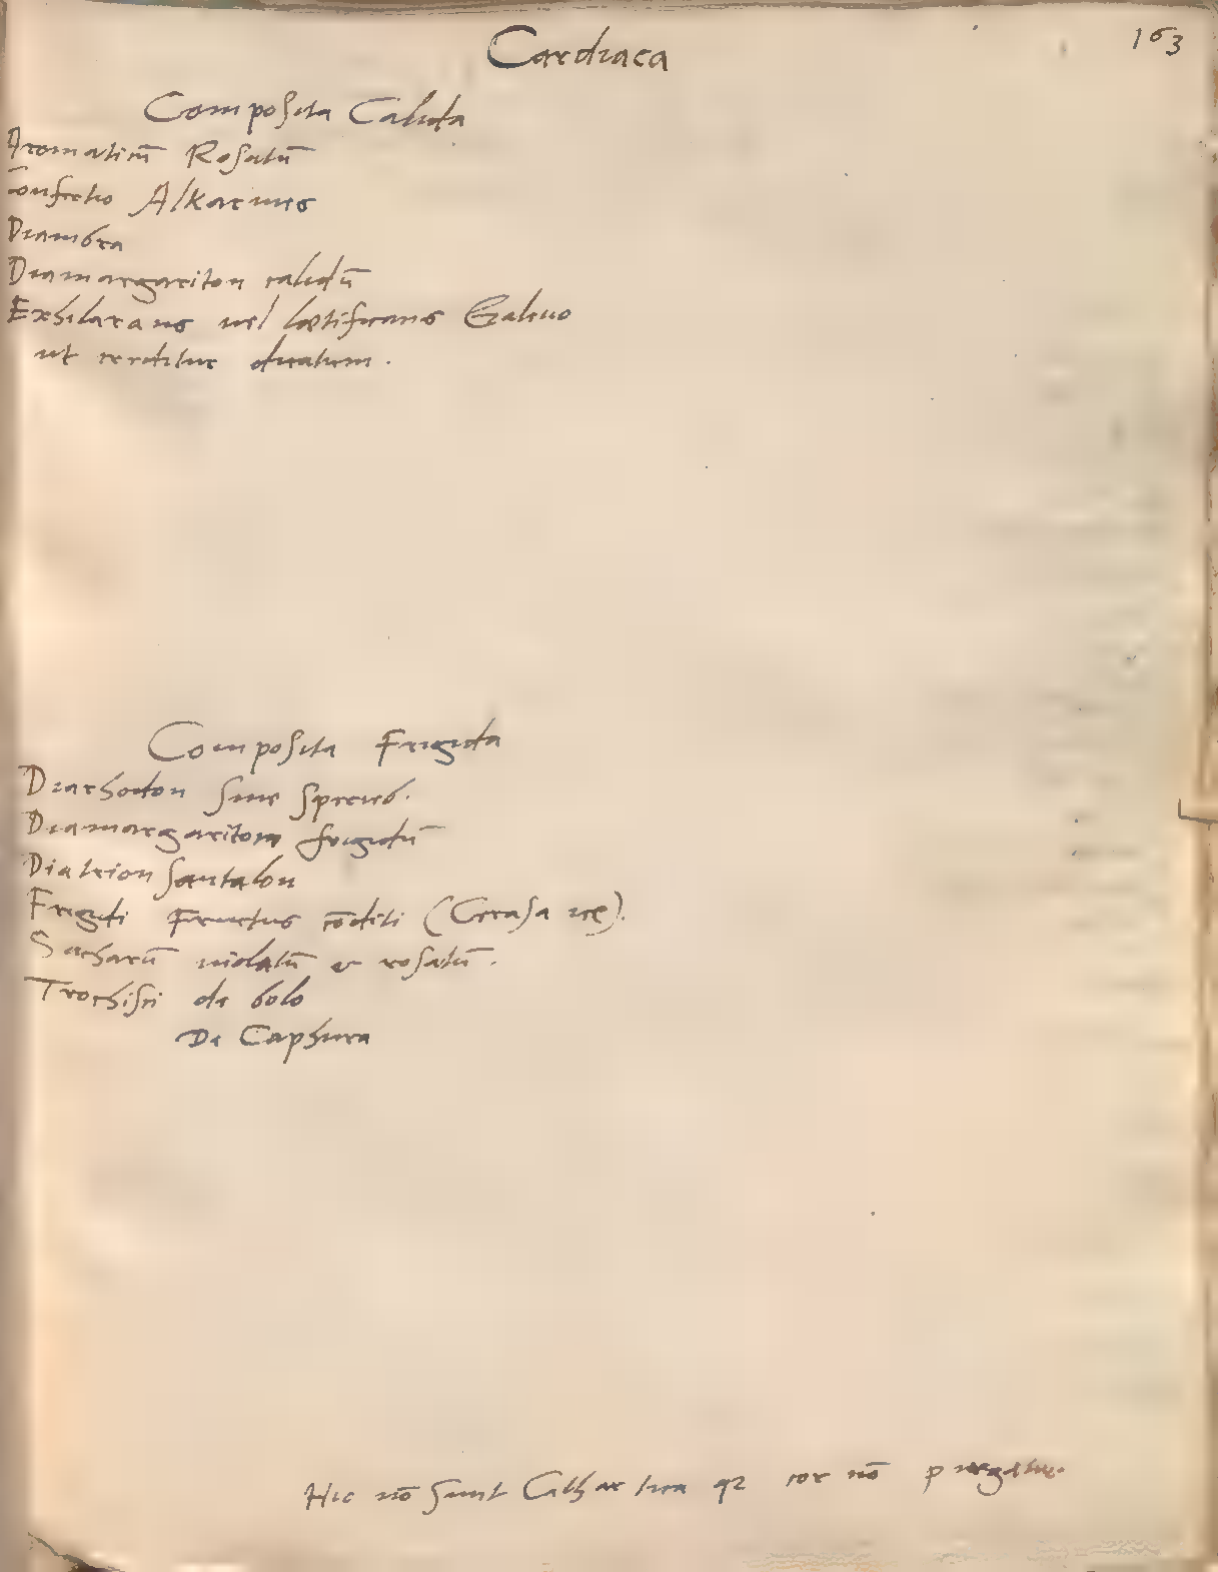 Cardiaca 163
Composita Calida
Aromaticū Rosatū
Confectio Alkarmes
Diambra
Diamargariton calidū
Exhilarans uel lætificans Galeno
ut creditur dicatum.
Composita Frigida
Diarhodon sine speciebˢ.
Diamargariton frigidū
Diatrion santalon
Frigidi Fructus cōditi (Cerasa ).
Sacharū uiolatū & rosatū.
Trochisci de bolo
De Caphura
Hic nō sunt Cathartica qz cor nō purgatur.